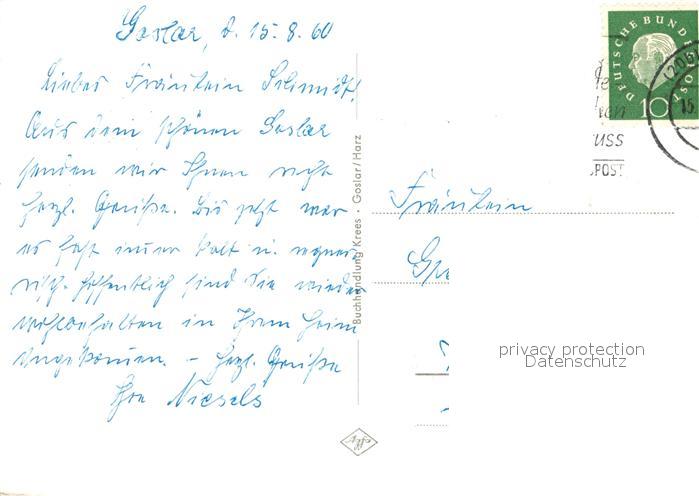 Goslar, d. 15.8.60
Liebes Fräulein Schmidt!
Aus dem schönen Goslar
senden wir Ihnen recht
herzl. Grüße. Bis jetzt war
es fast immer kalt u. regne-
risch. Hoffentlich sind Sie wieder
wohlbehalten in Ihrem Heim
angekommen. – Herzl. Grüße
Ihre Niesels
Buchhandlung Krees · Goslar/Harz
Fräulein
DEUTSCHE BUNDESPOST
10
(20b)
15.
uss
POST
privacy protection
Datenschutz